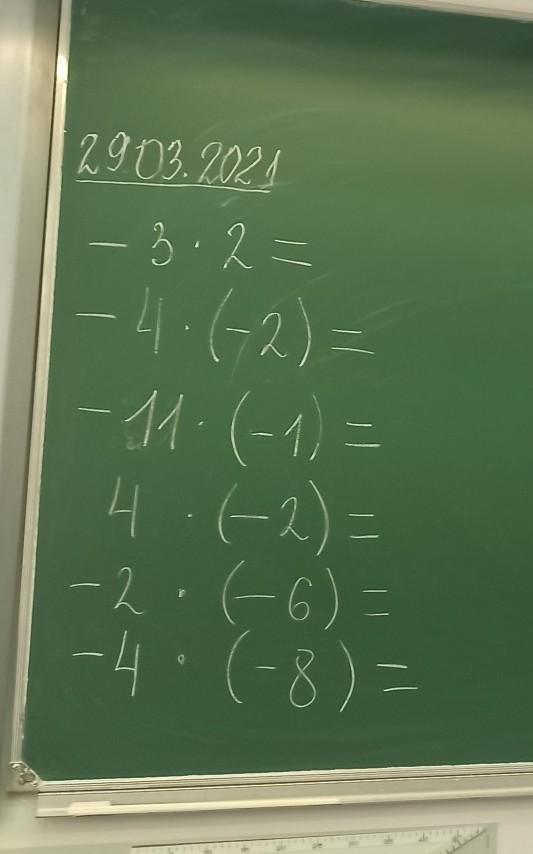 29.03.2021
- 3 · 2 =
- 4 · (-2) =
- 11 · (-1) =
4 · (-2) =
- 2 · (-6) =
- 4 · (-8) =